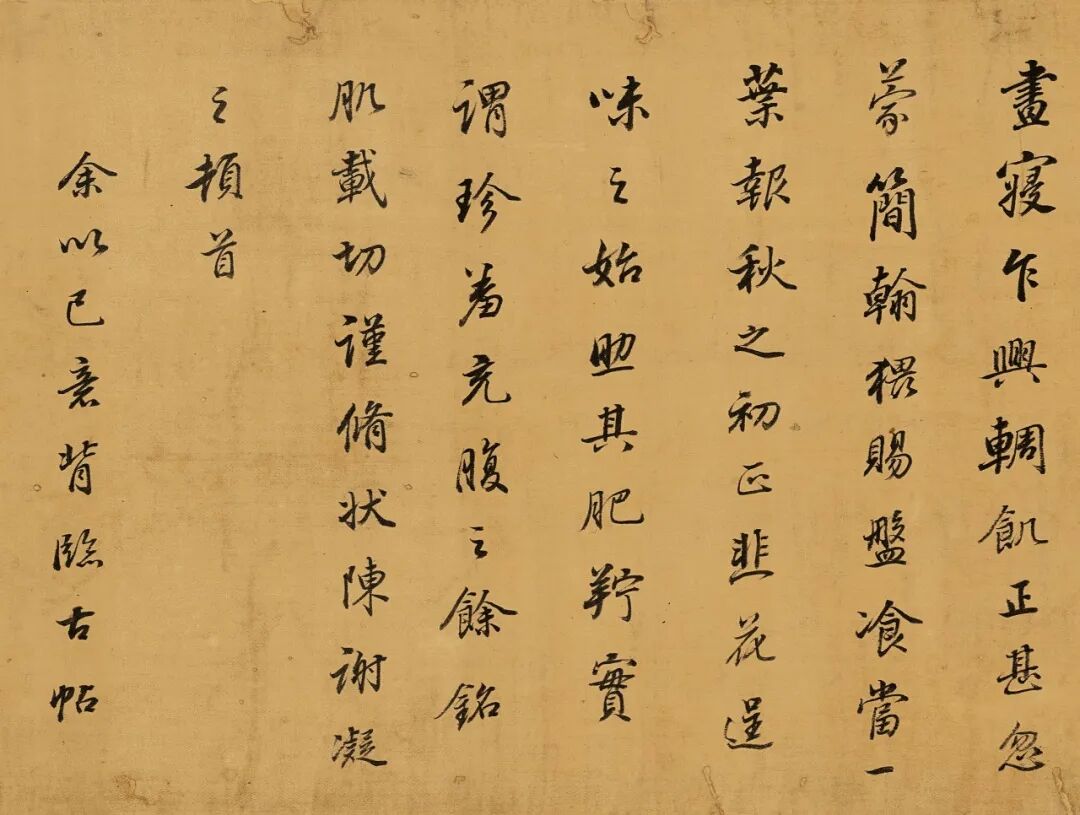 晝寢乍興輖飢正甚忽
蒙簡翰猥賜盤飡當一
葉報秋之初正韭花逞
味之始助其肥羜實
謂珍羞充腹之餘銘
肌載切謹脩狀陳謝凝
之頓首
余以己意背臨古帖